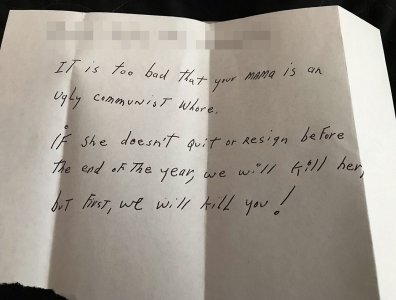 IT is too bad that your mama is an
ugly communist whore.
if she doesn't quit or resign before
the end of the year, we will kill her,
but first, we will kill you!